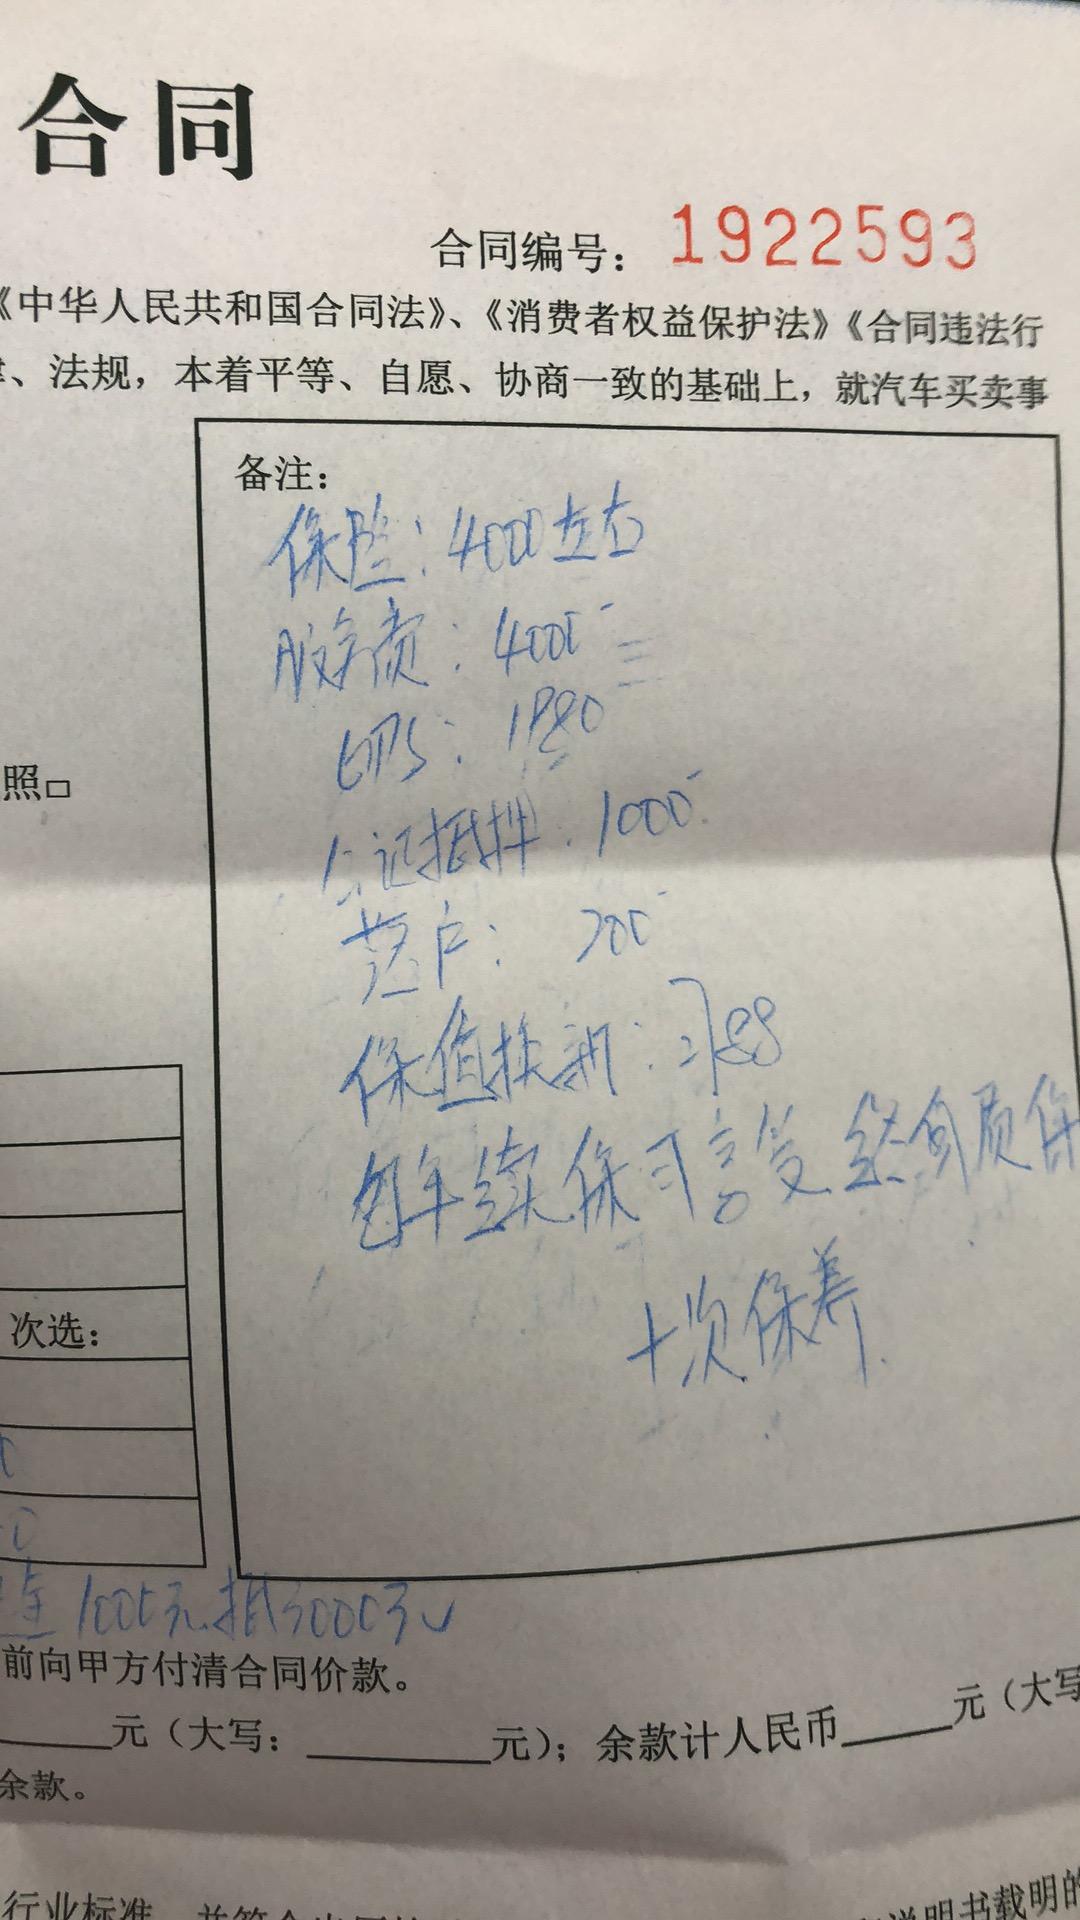 合同
合同编号：1922593
《中华人民共和国合同法》、《消费者权益保护法》《合同违法行
、法规，本着平等、自愿、协商一致的基础上，就汽车买卖事
备注：
保险：4000左右
服务费：4000
GPS：1980
公证抵押：1000
落户：200
保值换新：2788
包年续保可享受终身质保
十次保养
照□
次选：
1000元抵3000元
前向甲方付清合同价款。
元（大写：元）；余款计人民币元（大写
余款。
行业标准
说明书载明的